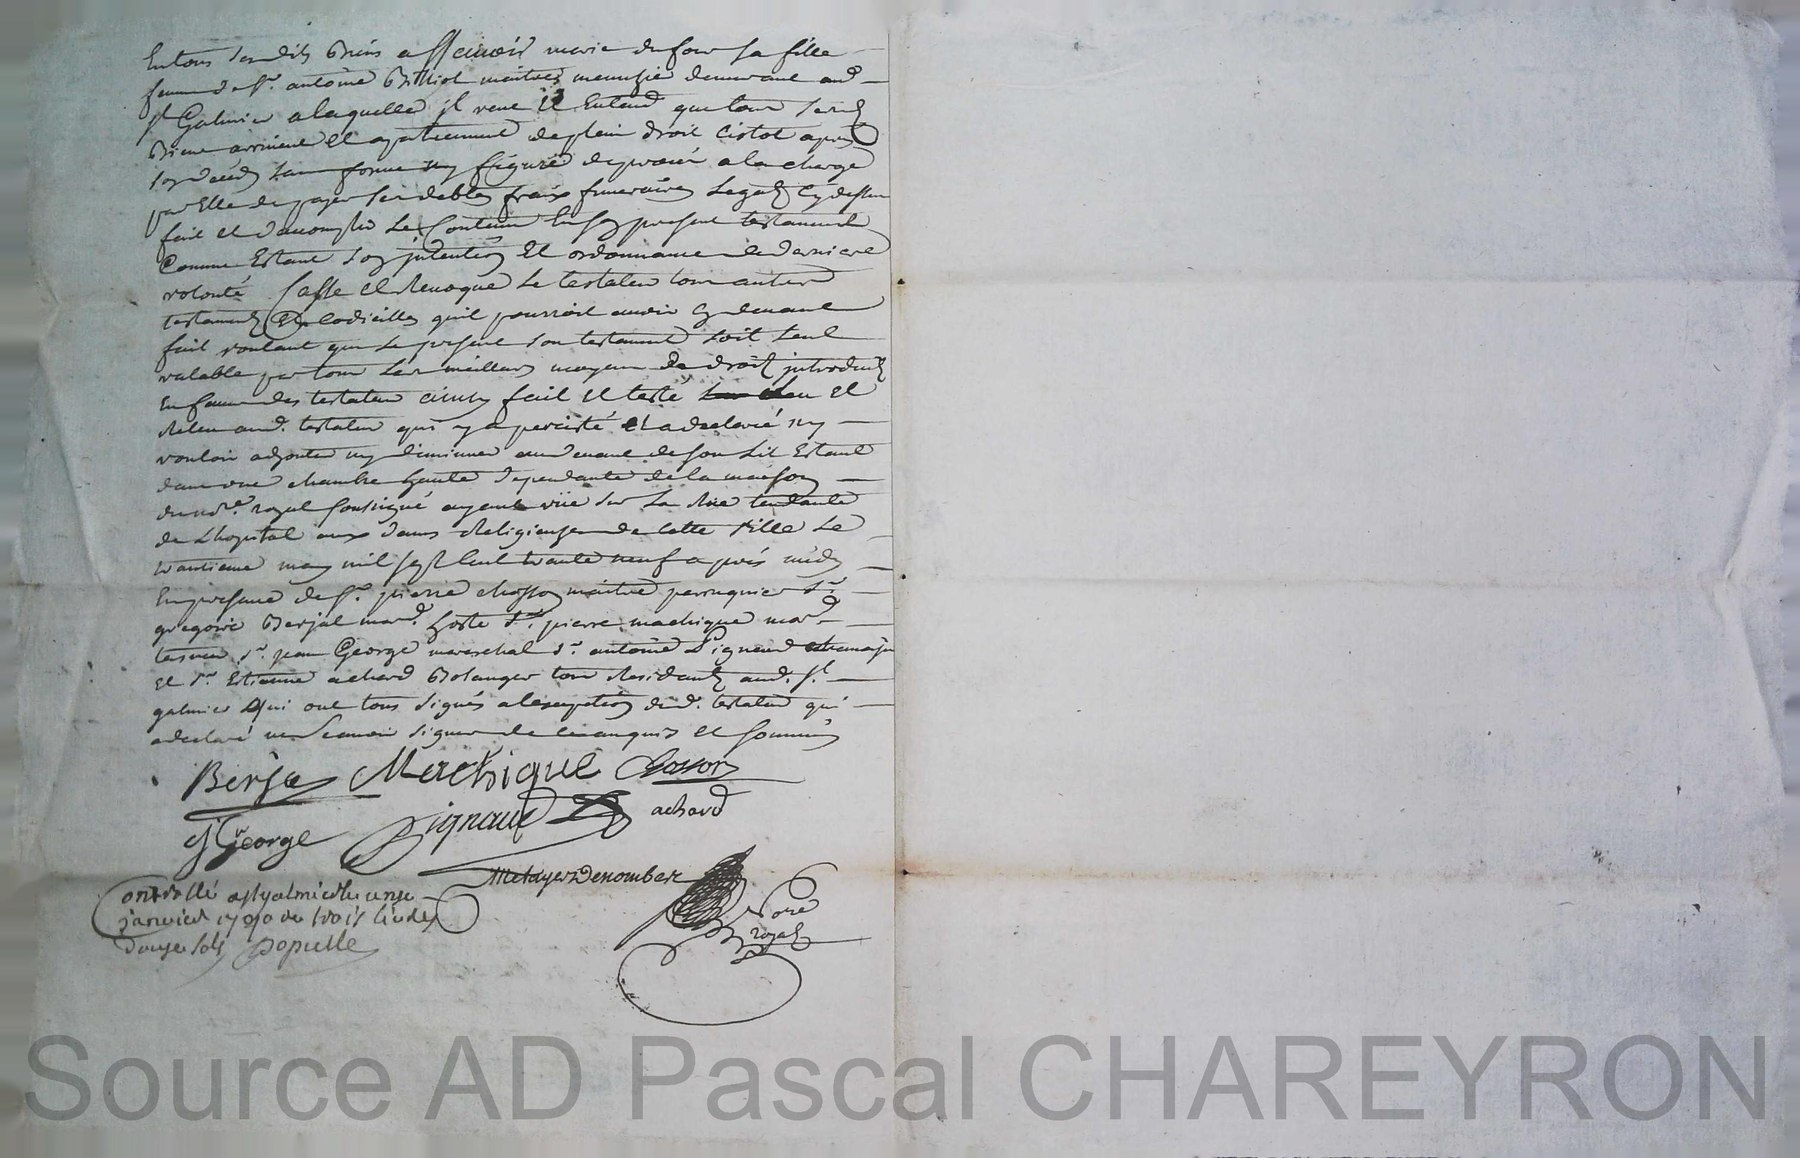 En tous sesdits biens assavoir marie dufour sa fille
femme de Sr. antoine menuzié demeurant aud.
St Galmier a laquelle il veut Et Entend que tous sesd.
Biens arrivent Et apartiennent de plein droit aprés
son deceds sans forme ny figure de procés a la charge
par Elle de payer ses debtes fraix funeraires Legats Cy dessus
fait Et d'accomplir Le Contenu En son present testament
Comme Estant son intention Et ordonnance de derniere
volonté Casse Et Revoque Le testateur tous autres
testaments Et Codicilles quil pourroit avoir Cy devant
fait voulant que Le present son testament soit seul
valable par tous Les meilleurs moyens de droit introduits
En faveur des testateurs ainsy fait Et testé Leu Et
Releu aud. testateur qui y a percisté Et a declaré ny
vouloir adjouter ny diminuer au devant de son Lit Estant
dans une chambre haute dependante de la maison
du no.re royal soussigné ayant vüe sur La Rüe tendante
de L'hopital aux dames Religieuses de Cette ville Le
may mil sept Cent trante neuf aprés midy
En presence de Sr. pierre chosson maitre perruquier Sr.
gregoire Berjal mard. hoste Sr. pierre machique mard.
Sr. jean George mareschal Sr. antoine Pignaud
Et Sr. Estienne achard Bolanger tous Residants aud. St
galmier qui ont tous signés a l'exeption dud. testateur qui
a declaré ne Sçavoir signer de ce enquis Et sommé
Berjal Machique Chosson
J George Pignaud achard
Metayer Denombert
Nore
royal
Controllé a St galmier le
janvier trois livres
douze sols Populle
Source AD Pascal CHAREYRON